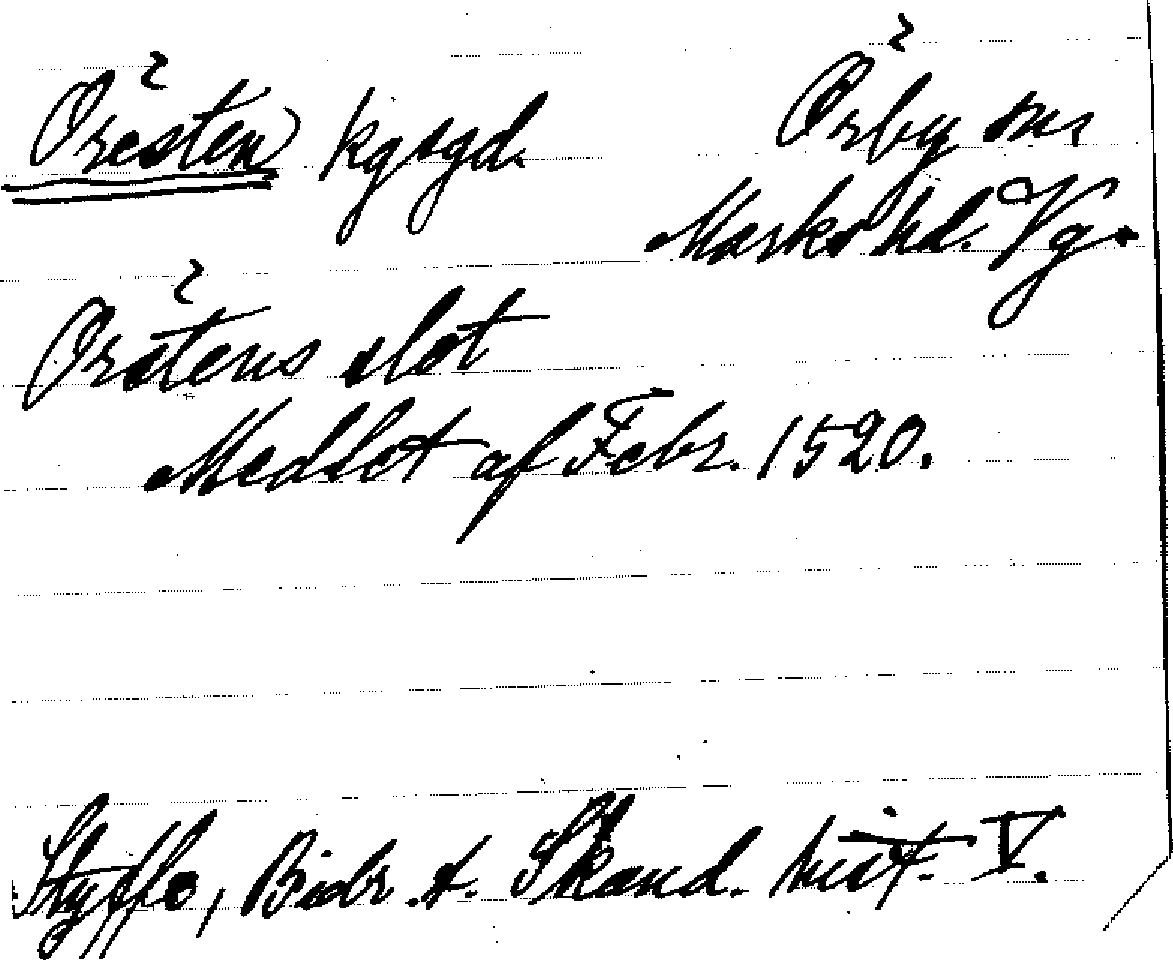 Öresten kgsgd. Örby sn.
Marks hd. Vg.
Örstens slot
Medlet af Febr. 1520.
Styffe, Bidr. t. Skand. hist. V.